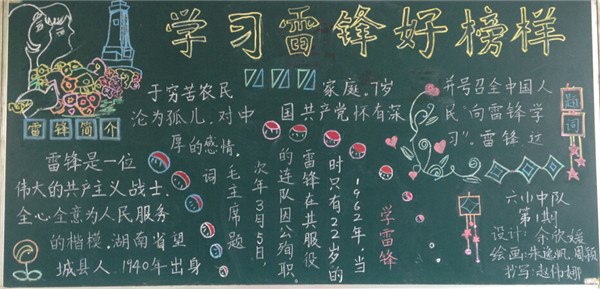 学习雷锋好榜样
雷锋简介
雷锋是一位
伟大的共产主义战士,
全心全意为人民服务
的楷模.湖南省望
城县人.1940年出身
于穷苦农民
家庭.7岁
沦为孤儿.对中
国共产党怀有深
厚的感情.
1962年,当
时只有22岁的
雷锋在其服役
的连队因公殉职.
次年3月5日,
毛主席题
词
并号召全中国人
民"向雷锋学
习".雷锋,这
题词
学雷锋
六小中队
第1期
设计:余欣媛
绘画:朱逸帆 周颖
书写:赵伟娜